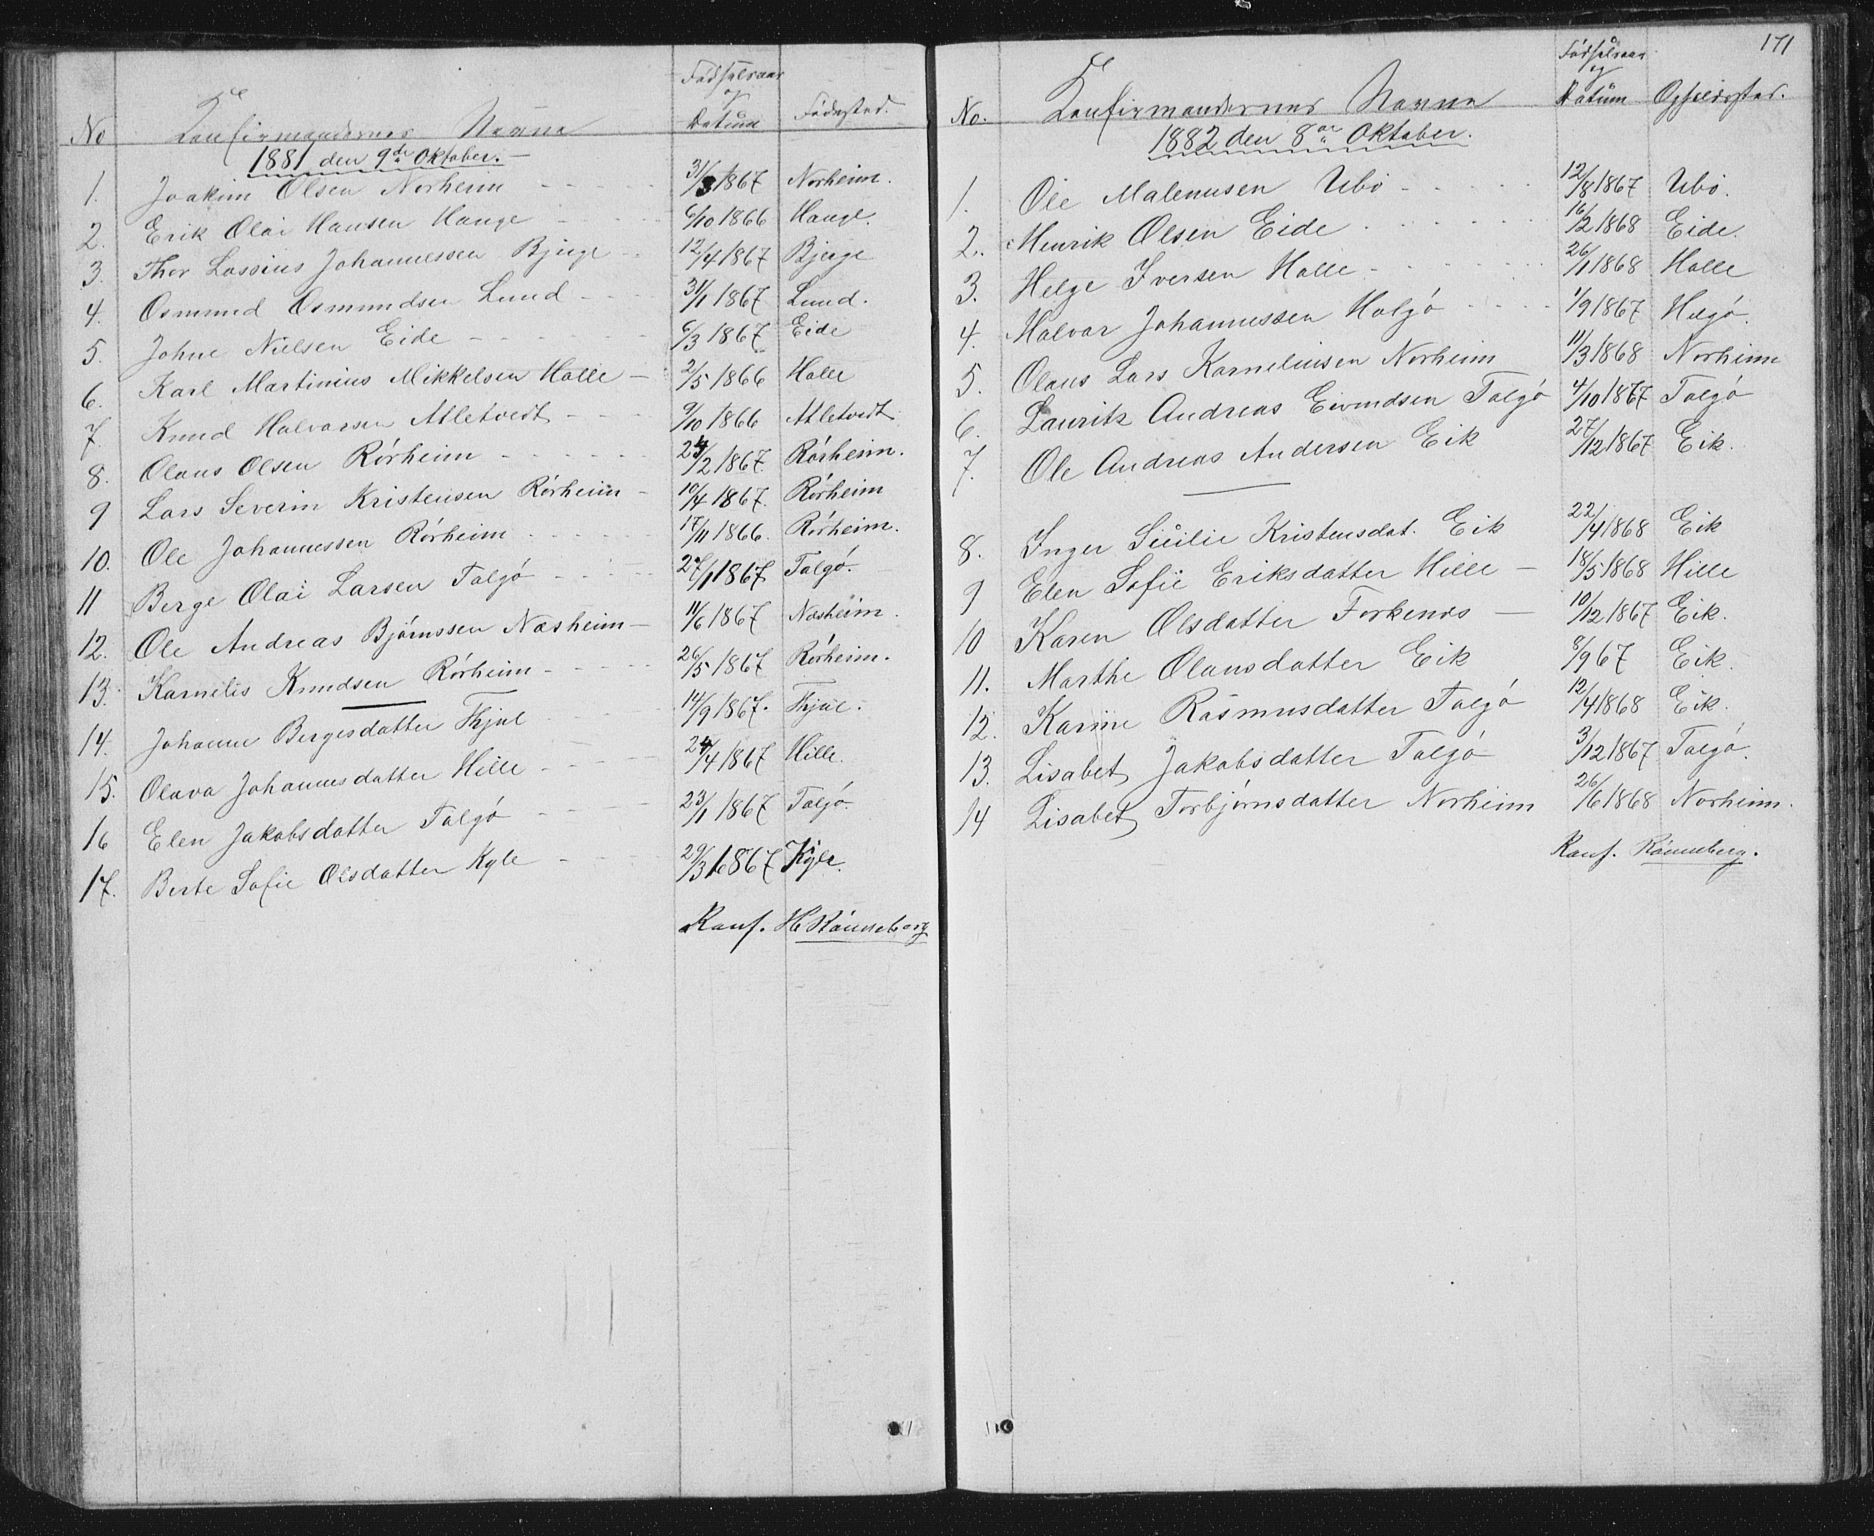 No Konfirmandernes Navne Fødselsaar og Datum Fødested.
1881 den 9de Oktober.
1. Joakim Olsen Norheim 31/3 1867 Norheim.
2. Erik Olai Hansen Hauge 6/10 1866 Hauge
3. Thor Lassius Johannessen Bjerge 12/4 1867 Bjerge
4. Osmund Osmundsen Lund 31/1 1867 Lund.
5. Johne Nielsen Eide 6/3 1867 Eide
6. Karl Martinius Mikkelsen Halle 2/5 1866 Halle
7. Knud Halvorsen Atletvedt 9/10 1866 Atletvedt
8. Olaus Olsen Rørheim 24/2 1867. Rørheim.
9 Lars Severin Kristensen Rørheim 10/4 1867. Rørheim
10. Ole Johannessen Rørheim 17/11 1866. Rørheim.
11 Berge Olai Larsen Talgø 27/1 1867 Talgø.
12. Ole Andreas Bjørnssen Næsheim 11/6 1867 Næsheim.
13. Kornelis Knudsen Rørheim 26/5 1867 Rørheim.
14. Johanne Bergesdatter Thjul 14/9 1867. Thjul.
15. Olava Johannesdatter Hille 24/4 1867 Hille.
16 Elen Jakobsdatter Talgø 23/1 1867 Talgø.
17. Berte Sofie Olsdatter Kyle 29/3 1867 Kyle.
Konf. H Rønneberg
171
No. Konfirmandernes Navne Fødselsaar og Datum Opholdssted.
1882 den 8de Oktober.
1. Ole Malenusen Ubø 12/8 1867 Ubø.
2. Henrik Olsen Eide 16/2 1868 Eide.
3. Helge Iversen Halle 26/1 1868 Halle
4. Halvor Johannessen Halgø 1/9 1867 Hægø.
5. Olaus Lars Korneliusen Norheim 11/3 1868 Norheim
6. Lauritz Andreas Eivindsen Talgø 4/10 1867 Talgø
7. Ole Andreas Andersen Eik 27/12 1867 Eik.
8. Inger Sicilie Kristensdat. Eik 22/4 1868 Eik
9 Elen Sofie Eriksdatter Hille 18/5 1868 Hille
10 Karen Olsdatter Forkenes 10/12 1867 Eik.
11. Marthe Olausdatter Eik 8/9 67 Eik.
12. Karine Rasmusdatter Talgø 12/4 1868 Eik.
13. Lisabet Jakobsdatter Talgø 3/12 1867 Talgø.
14 Lisabet Torbjørnsdatter Norheim 26/6 1868 Norheim.
Konf. Rønneberg.